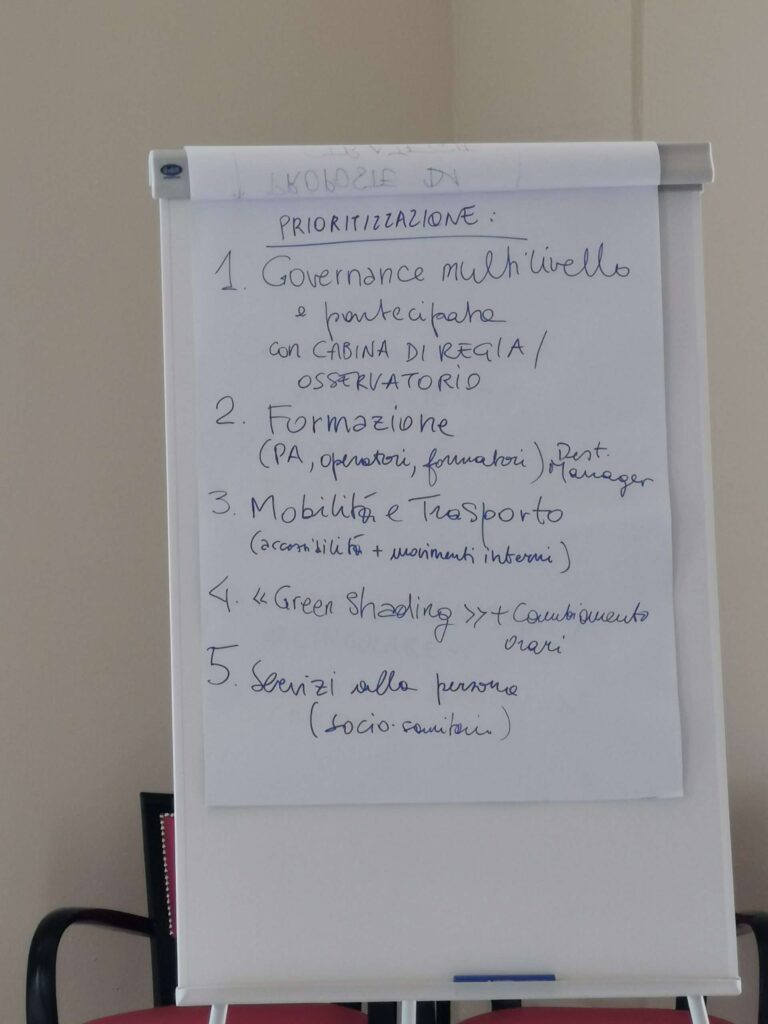 PROPOSTE DI
PRIORITIZZAZIONE:
1. Governance multilivello
e partecipata
con CABINA DI REGIA /
OSSERVATORIO
2. Formazione
(PA, operatori, formatori) Dest.
Manager
3. Mobilità e Trasporto
(accessibilità + movimenti interni)
4. «Green Shading» + Cambiamento
orari
5. Servizi alla persona
(socio-sanitari)